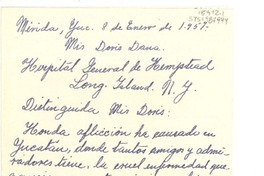 Mérida, Yuc. 8 de Enero de 1.957.
Mis Doris Dana.
Hospital General de Hempstead
Long. Island. N. Y.
Distinguida Mis Doris:
Honda aflicción ha causado en
Yucatán, donde tantos amigos y admi-
radores tiene, la cruel enfermedad que